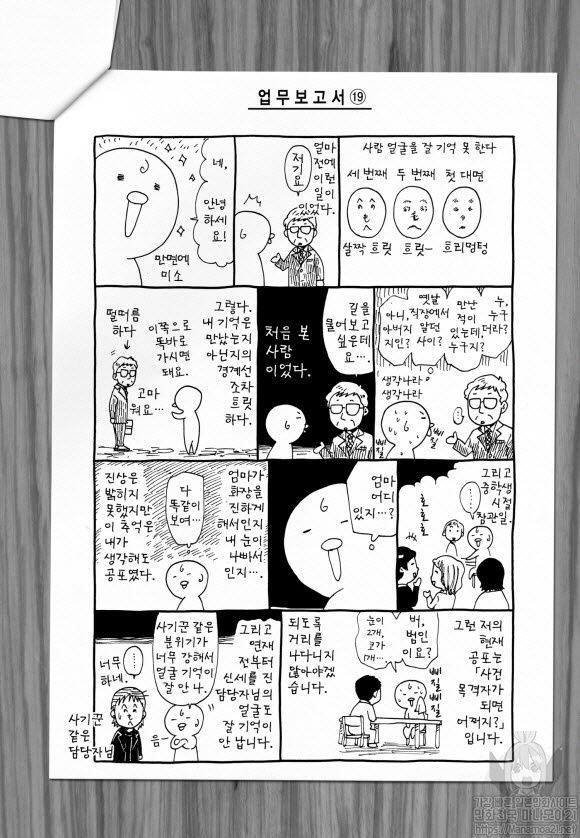 업무보고서⑲
사람 얼굴을 잘 기억 못 한다
첫 대면
두 번째
세 번째
흐리멍텅
흐릿—
살짝 흐릿
얼마
전에
이런
일이
있었다.
저기요
네,
안녕
하세요!
만면에
미소
누,
누구
더라?
만난
적이
있는데,
누구지?
옛날
직장에서
알던
사이?
아니,
아버지
지인?
생각나라
생각나라
삐질
길을
물어보고
싶은데
요…
처음 본
사람
이었다.
그렇다.
내 기억은
만났는지
아닌지의
경계선
조차
흐릿
하다.
이쪽으로
똑바로
가시면
돼요.
고마
워요…
떨떠름
하다
그리고
중학생
시절
참관일.
호호호
엄마
어디
있지…?
엄마가
화장을
진하게
해서인지
내 눈이
나빠서
인지…
다
똑같이
보여…
진상은
밝히지
못했지만
이 추억은
내가
생각해도
공포였다.
그런 저의
현재
공포는
「사건
목격자가
되면
어쩌지?」
입니다.
버,
범인
이요?
눈이
2개,
코가
1개…
삐질삐질
되도록
거리를
나다니지
않아야겠
습니다.
그리고
연재
전부터
신세를 진
담당자님의
얼굴도
잘 기억이
안 납니다.
사기꾼 같은
분위기가
너무 강해서
얼굴 기억이
잘 안 나.
음—
너무
하네.
사기꾼
같은
담당자님
https://Manamoa2.net